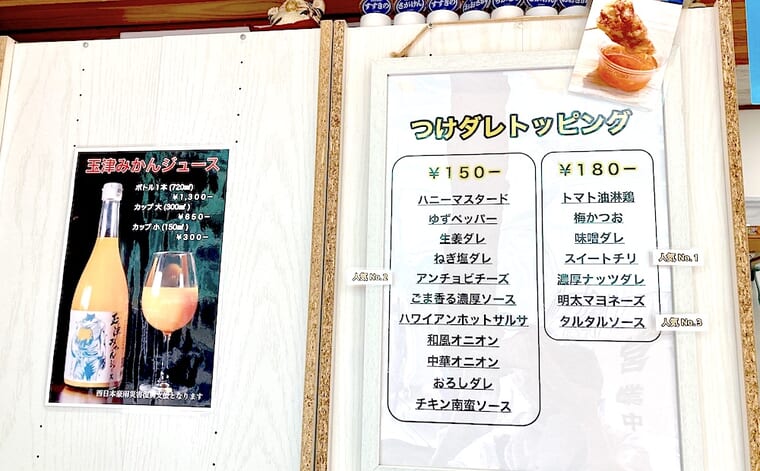 玉津みかんジュース
ボトル1本(720㎖)
¥1,300ー
カップ 大(300㎖)
¥650ー
カップ 小(150㎖)
¥300ー
西日本豪雨災害復興支援となります
つけダレトッピング
¥150ー
ハニーマスタード
ゆずペッパー
生姜ダレ
ねぎ塩ダレ
人気 No.2
アンチョビチーズ
ごま香る濃厚ソース
ハワイアンホットサルサ
和風オニオン
中華オニオン
おろしダレ
チキン南蛮ソース
¥180ー
トマト油淋鶏
梅かつお
味噌ダレ
スイートチリ
人気 No.1
濃厚ナッツダレ
明太マヨネーズ
タルタルソース
人気 No.3
営業中